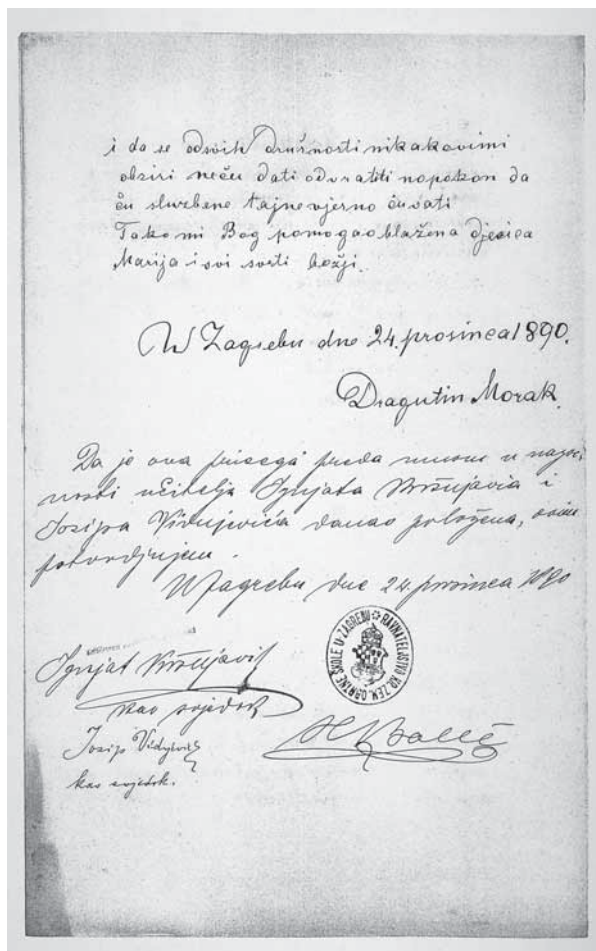 i da se odsvih družnosti nikakovimi
obziri neću dati odvratiti napokon da
ću službene tajne vjerno čuvati
Tako mi Bog pomogao blažena djevica
Marija i svi sveti božji.
U Zagrebu dne 24. prosinca 1890.
Dragutin Morak.
Da je ova prisega preda mnom u nazoč-
nosti učitelja Ignjata
Josipa danas položena, ovim
potvrdjujem.
U Zagrebu dne 24. prosinca 1890
RAVNATELJSTVO KR. ZEM. OBRTNE ŠKOLE U ZAGREBU
Ignjat
kao svjedok
Josip
kao svjedok.
H Bollé